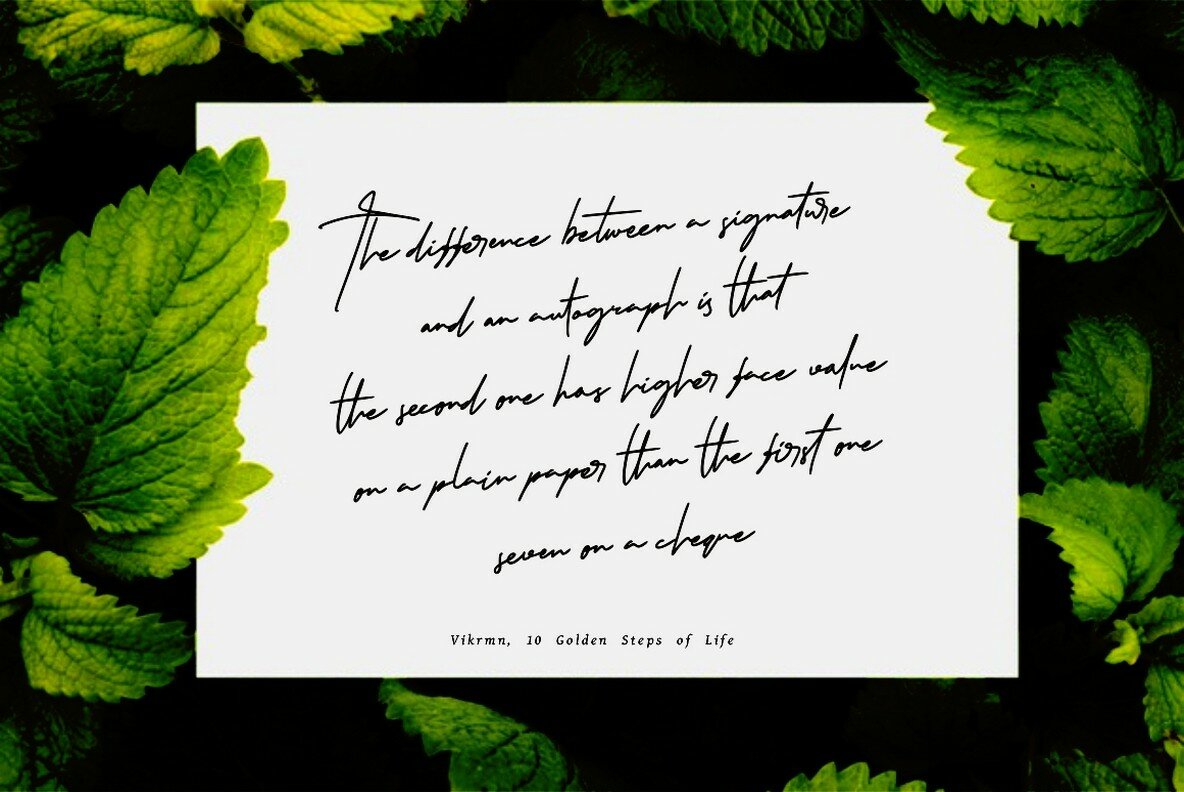 The difference between a signature
and an autograph is that
the second one has higher face value
on a plain paper than the first one
seven on a cheque
Vikrmn, 10 Golden Steps of Life